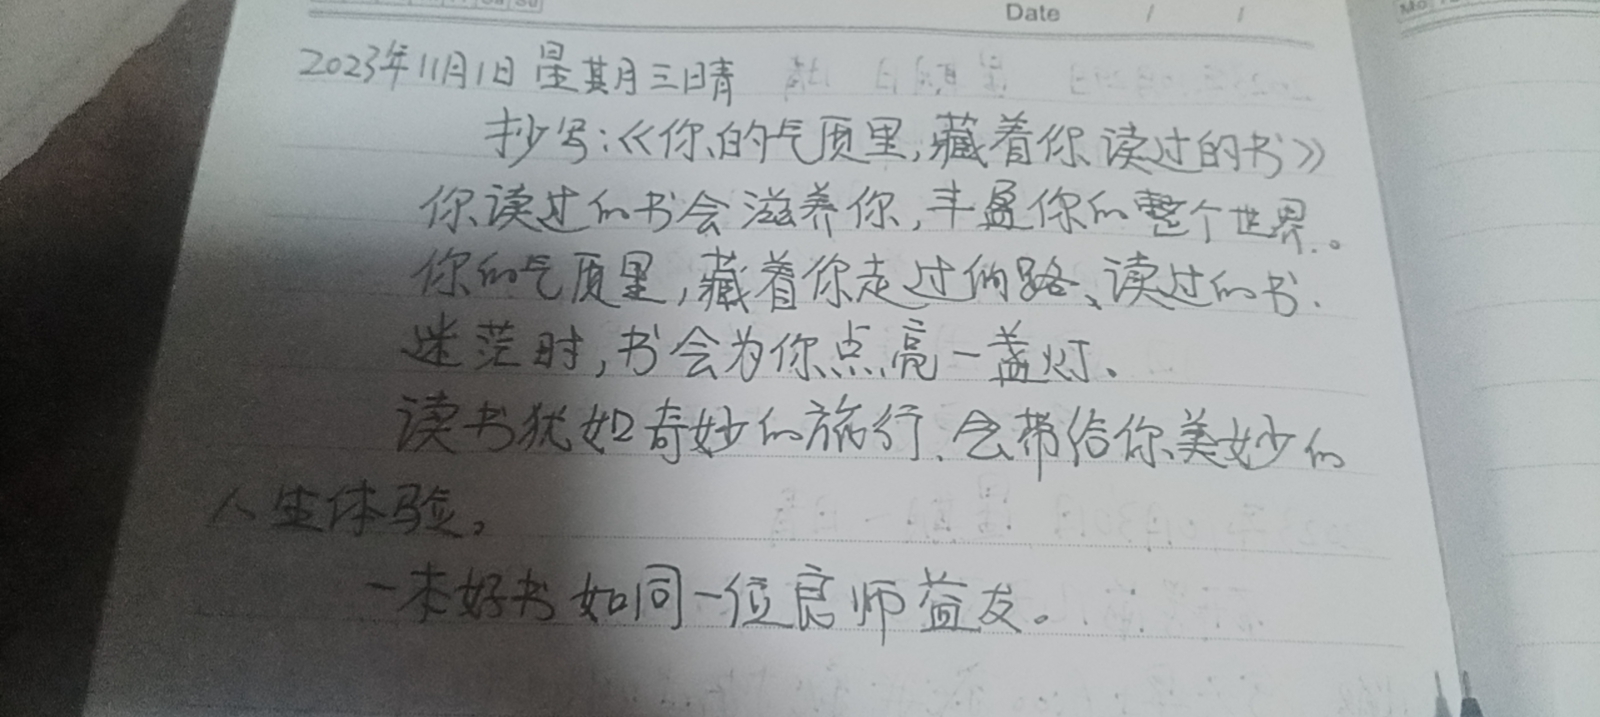 Date / /
2023年11月1日 星其月三日晴
抄写:《你的气质里,藏着你读过的书》
你读过的书会滋养你,丰盈你的整个世界。
你的气质里,藏着你走过的路、读过的书.
迷茫时,书会为你点亮一盏灯、
读书犹如奇妙的旅行、会带给你美妙的
人生体验。
一本好书如同一位良师益友。
Mo